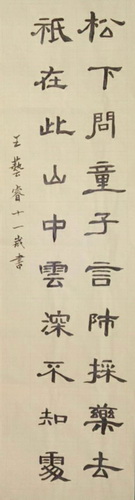 松下問童子言師採藥去
祇在此山中雲深不知處
王藝睿十一歲書